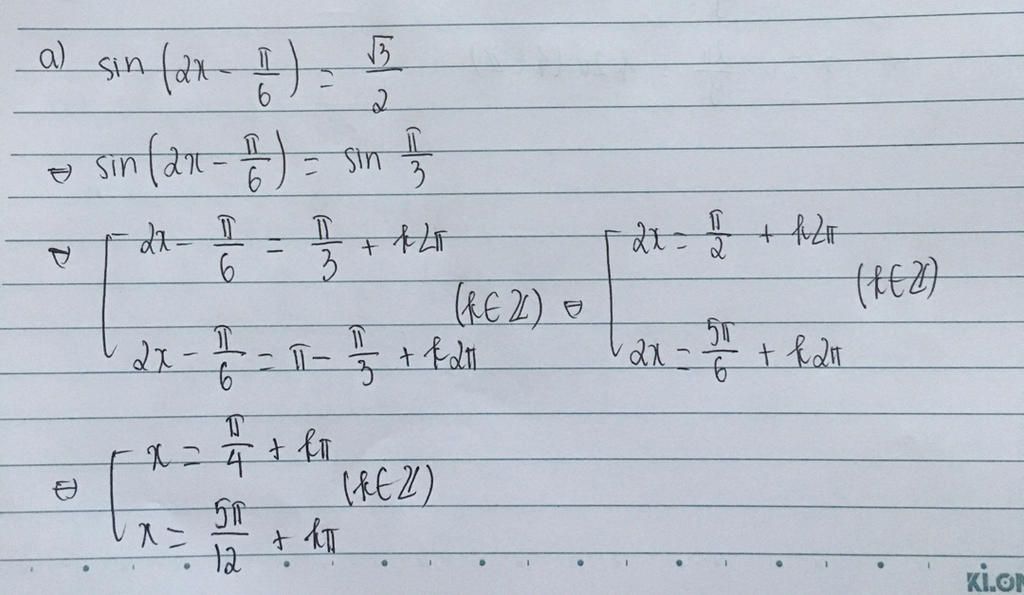 a) sin (2x - π/6) = √3/2
⇔ sin (2x - π/6) = sin π/3
⇔ [ 2x - π/6 = π/3 + k2π
2x - π/6 = π - π/3 + k2π (k∈ℤ) ⇔ [ 2x = π/2 + k2π
2x = 5π/6 + k2π (k∈ℤ)
⇔ [ x = π/4 + kπ
x = 5π/12 + kπ (k∈ℤ)